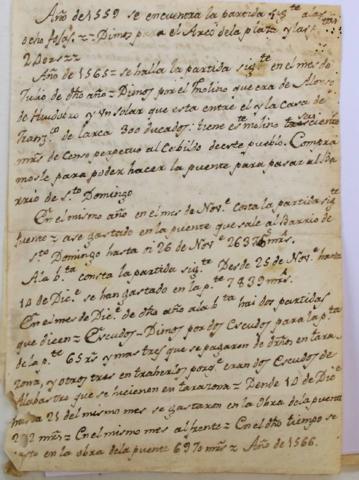 Año de 1559 se encuentra la partida sig.te a las
ocho fojas z z Dimos para el Arco de la plata y las
2 Dorszz
Año de 1565 z se halla la partida sig.te en el mes de
Julio de dho año z Dimos por el molino que era de Alonso
de y un solar que esta entre el y la Casa de
Franz.co de Larca 300 ducados: tiene este molino trescientos
mrs de Censo perpetuo al Cabildo de este pueblo. Compra
mosle para poder hacer la puente para pasar al Ba
rrio de S.to Domingo
En el mismo año en el mes de Nov.e Costa la partida sig.te
fuente z a se gastado en la puente que sale al Barrio de
S.to Domingo hasta oi 26 de Nov.e mrs.
A la b.ta consta la partida sig.te Desde 25 de Nov.e hasta
10 de Dic.e se han gastado en la p.te 7839 mrs.
En el mes de Dic.e de dho año a la b.ta hai dos partidas
que dicen z Escudos = Dimos por dos Escudos para la p.ta
de la p.te 65 rs y mas tres que se pagaron de dhos en tara
zona, y otros tres en traherlos porq. eran dos Escudos de
Alabastro que se hicieron en tarazona z Dende 10 de Dic.e
hasta 21 del mismo mes se gastaron en la Obra de la puente
mrs z En el mismo mes al frente z En el dho tiempo se
gasto en la obra de la puente 6970 mrs z Año de 1566.